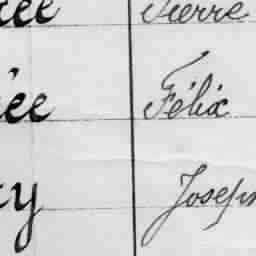 ée Pierre
ée Félix
y Joseph